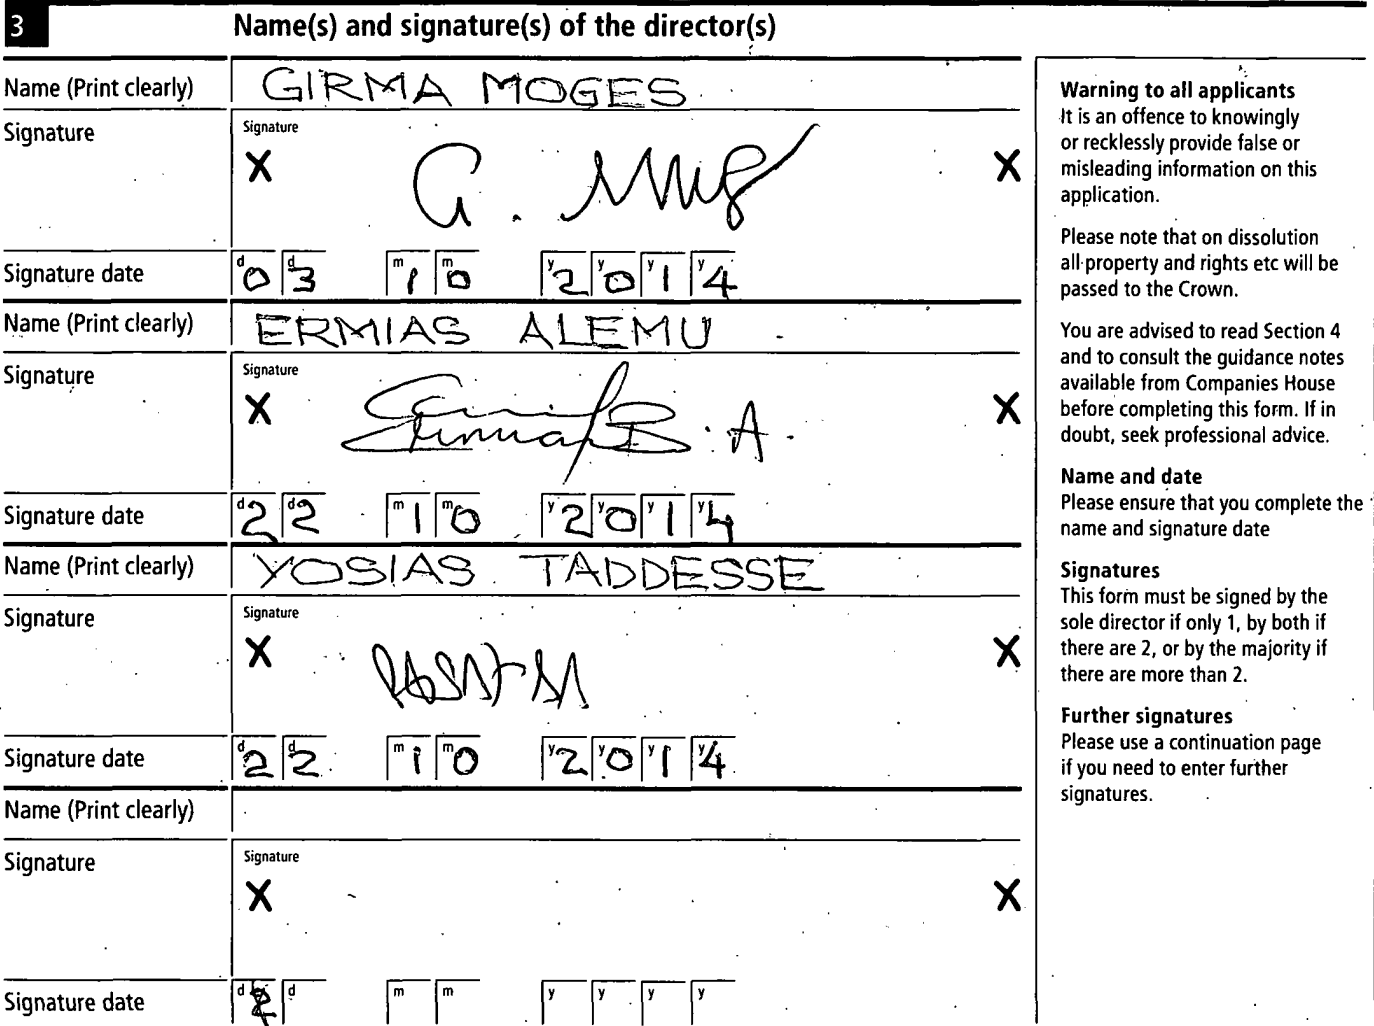 3 Name(s) and signature(s) of the director(s)
Name (Print clearly) GIRMA MOGES
Signature
Signature
X X
G.
Signature date d0 d3 m1 m0 y2 y0 y1 y4
Name (Print clearly) ERMIAS ALEMU
Signature
Signature
X X
. A.
Signature date d2 d2 m1 m0 y2 y0 y1 y4
Name (Print clearly) YOSIAS TADDESSE
Signature
Signature
X X
Signature date d2 d2 m1 m0 y2 y0 y1 y4
Name (Print clearly)
Signature
Signature
X X
Signature date d d m m y y y y
Warning to all applicants
It is an offence to knowingly
or recklessly provide false or
misleading information on this
application.
Please note that on dissolution
all property and rights etc will be
passed to the Crown.
You are advised to read Section 4
and to consult the guidance notes
available from Companies House
before completing this form. If in
doubt, seek professional advice.
Name and date
Please ensure that you complete the
name and signature date
Signatures
This form must be signed by the
sole director if only 1, by both if
there are 2, or by the majority if
there are more than 2.
Further signatures
Please use a continuation page
if you need to enter further
signatures.